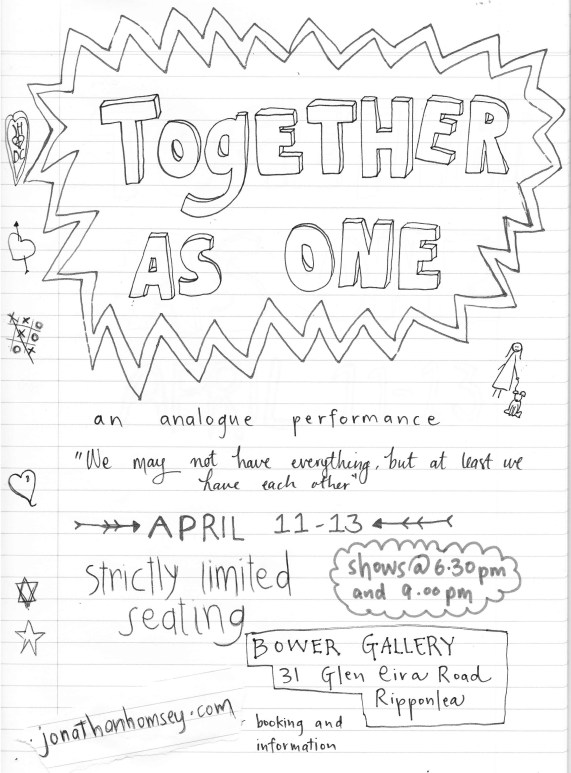 TogETHER
AS ONE
an analogue performance
"We may not have everything, but at least we
have each other"
APRIL 11-13
strictly limited
seating
shows @ 6.30pm
and 9.00pm
BOWER GALLERY
31 Glen Eira Road
Ripponlea
jonathanhomsey.com
booking and
information